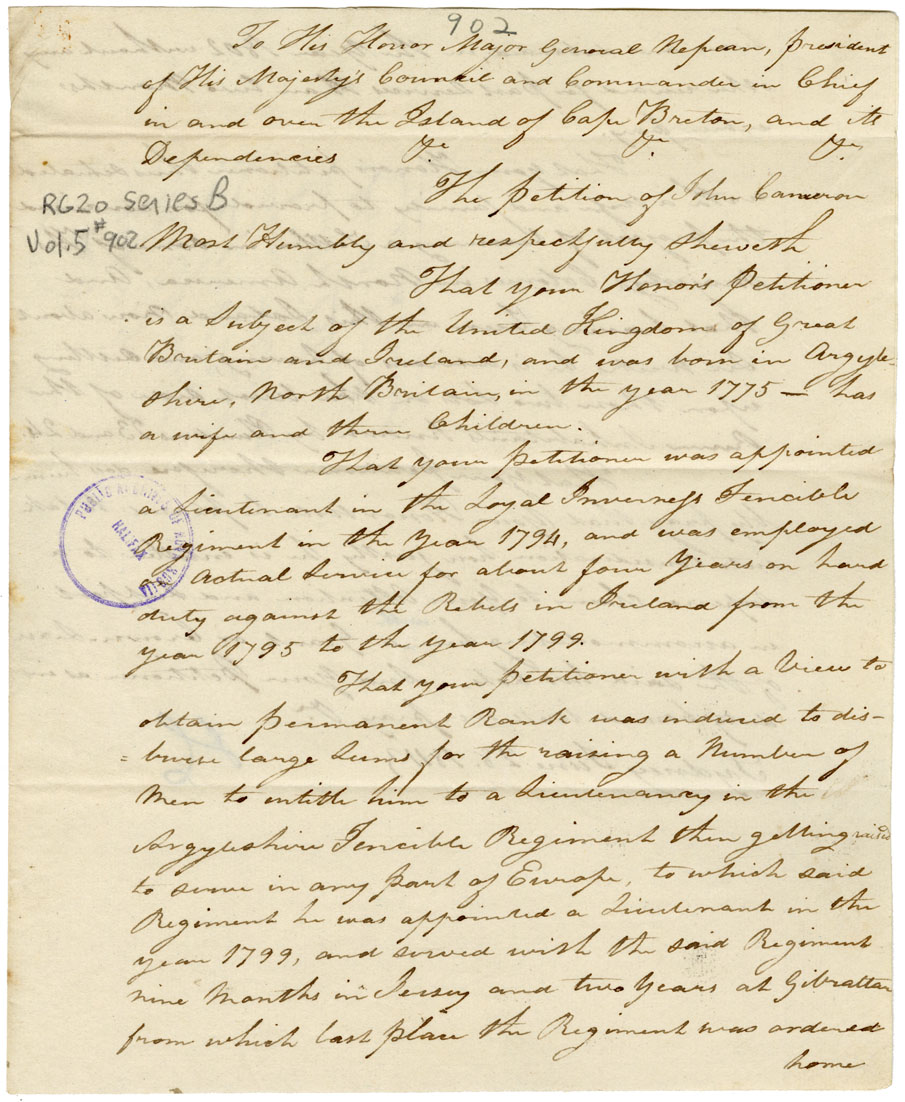 902
To His Honor Major General Nepean, president
of His Majesty's Council and Commander in Chief
in and over the Island of Cape Breton, and its
Dependencies &c &c &c
The petition of John Cameron
RG20 Series B
Vol. 5 # 902
Most Humbly and respectfully Sheweth
That your Honor's Petitioner
is a Subject of the United Kingdom of Great
Britain and Ireland, and was born in Argyle-
shire, North Britain, in the year 1775 — has
a wife and three Children.
That your petitioner was appointed
a Lieutenant in the Loyal Inverness Fencible
Regiment in the Year 1794, and was employed
on Actual Service for about four Years on hard
duty against the Rebels in Ireland from the
year 1795 to the year 1799.
PUBLIC ARCHIVES OF NOVA SCOTIA
HALIFAX
That your petitioner with a View to
obtain permanent Rank was induced to dis-
=burse large Sums for the raising a Number of
Men to intitle him to a Lieutenancy in the
Argyleshire Fencible Regiment then getting raised
to serve in any part of Europe, to which said
Regiment he was appointed a Lieutenant in the
year 1799, and served with the said Regiment
nine Months in Jersey and two Years at Gibraltar
from which last place the Regiment was ordered
home